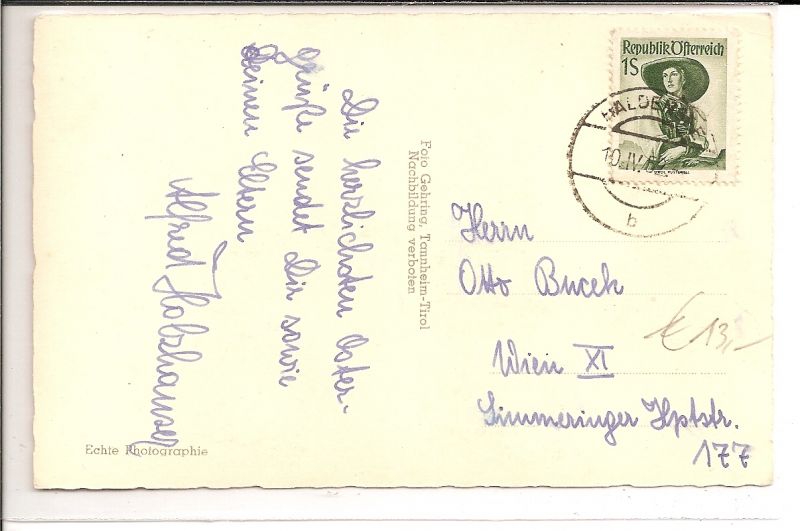 Die herzlichsten Oster-
grüße sendet Dir sowie
Deinen Eltern
Alfred Holzhauser
Echte Photographie
Foto Gehring, Tannheim-Tirol
Nachbildung verboten
Republik Österreich
1S
HALDENSEE
10.IV.
b
Herrn
Otto Bucek
Wien XI
Simmeringer Hptstr.
177
€ 13,-